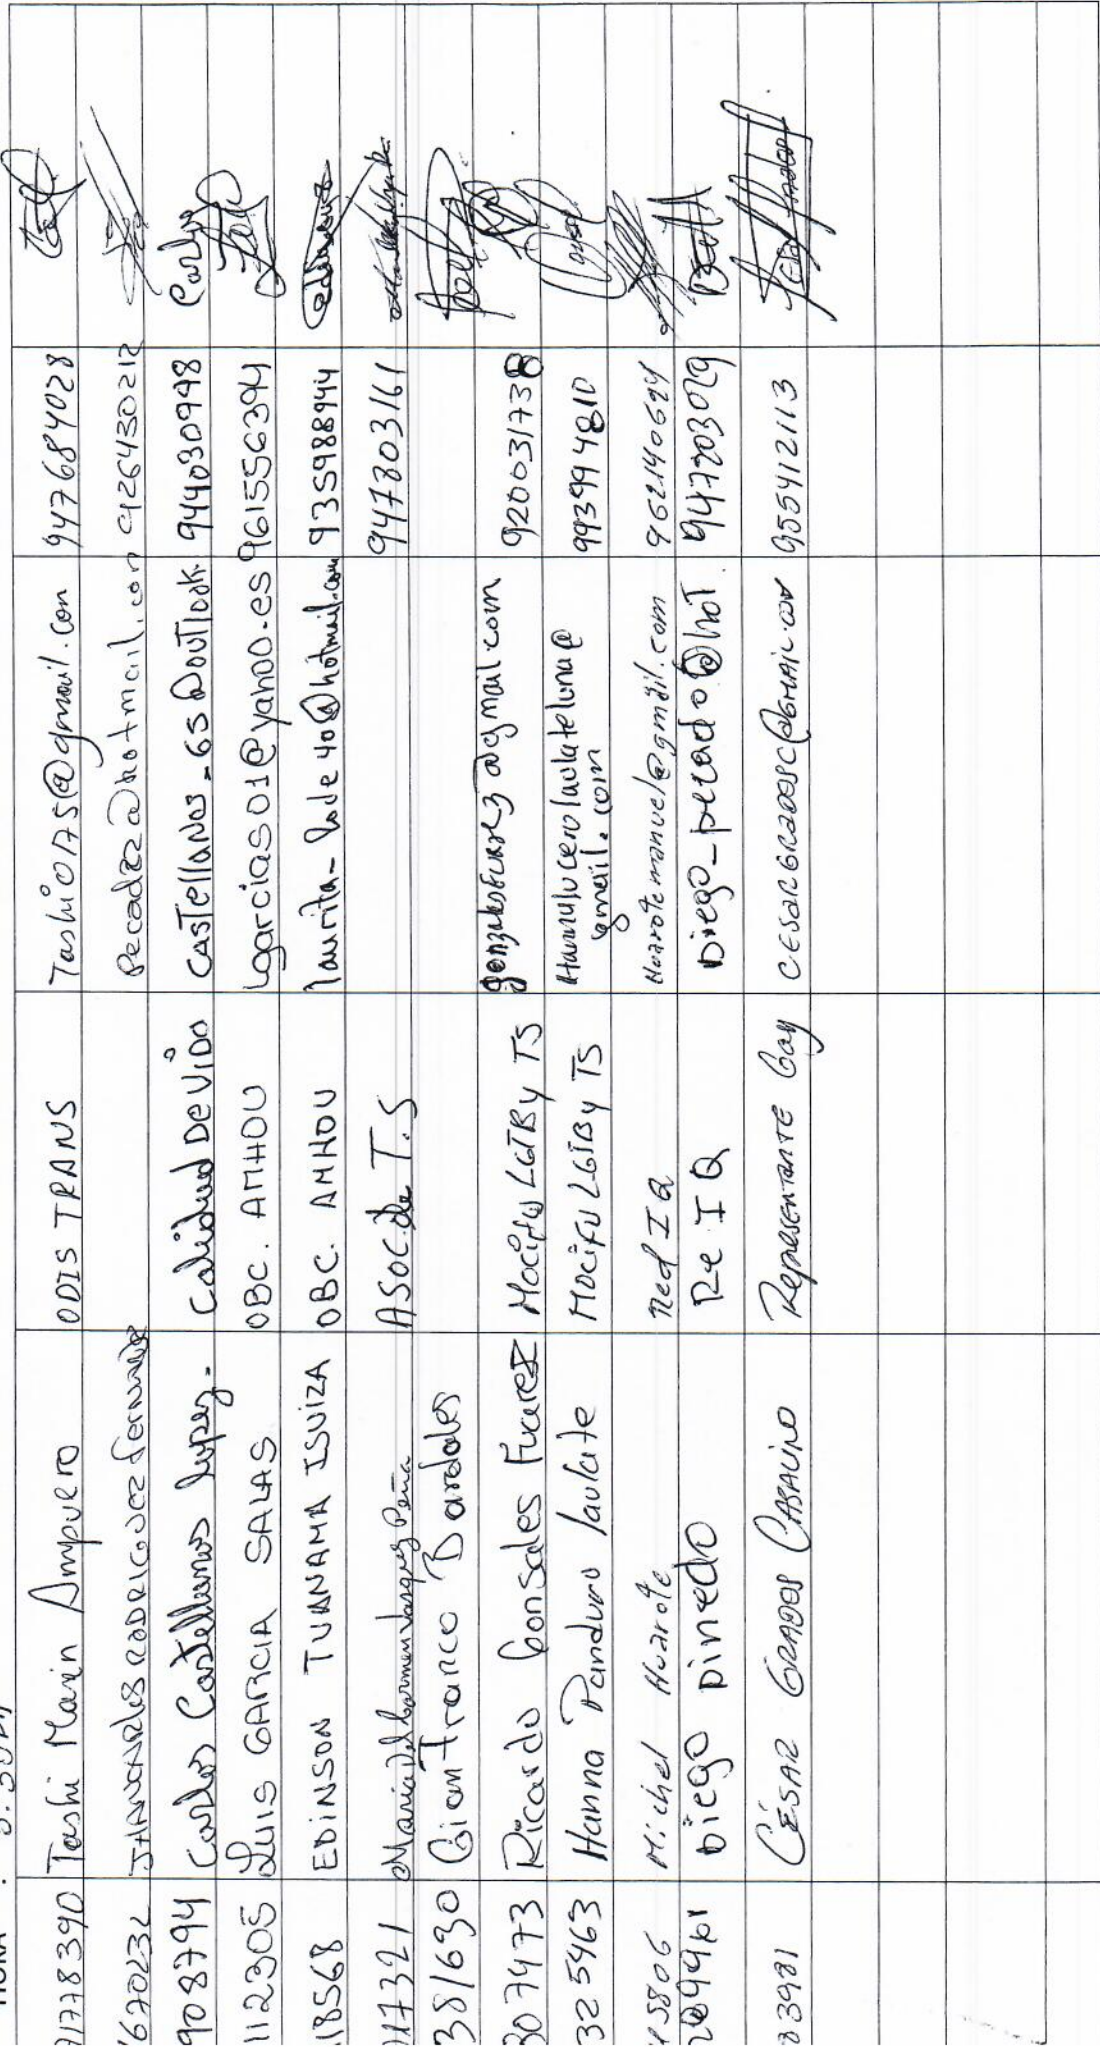 HORA : 8:30
71778390 Tashi Marin Ampuero ODIS TRANS Tashi0175@gmail.con 947684028
670232 JHANCARLOS RODRIGUEZ fernandez Pecadaz@hotmail.con 926430212
908794 Carlos Castellanos lupez. Calidad De ViDa CasTellaNos_65@ouTlook. 944030948 Carlos
112305 Luis GARCIA SALAS OBC. AMHOU Lgarcias01@yahoo.es 961556394
18568 EDiNSON TUANAMA ISUIZA OBC. AMHOU laurita_lode40@hotmail.com 935988944
117321 Maria del Carmen Vasquez Peña ASOC.de T.S 947803161
381630 Gian Franco Bardales
307473 Ricardo Gonsales Fuarez Mocifu LGTB y TS @gmail.com 920031738
325463 Hanna Panduro laulate Mocifu LGTB y TS Hannalucerolaulateluna@ 993994810
gmail.com
15806 Michel Huarote Red I Q Huarotemanuel@gmail.com 962140694
Diego pinedo Re I Q Diego_pecado@hoT. 947203029
83981 César GRADOS CABALINO Representante Gay CESARGRADOSC@GMAIL.COM 955412113